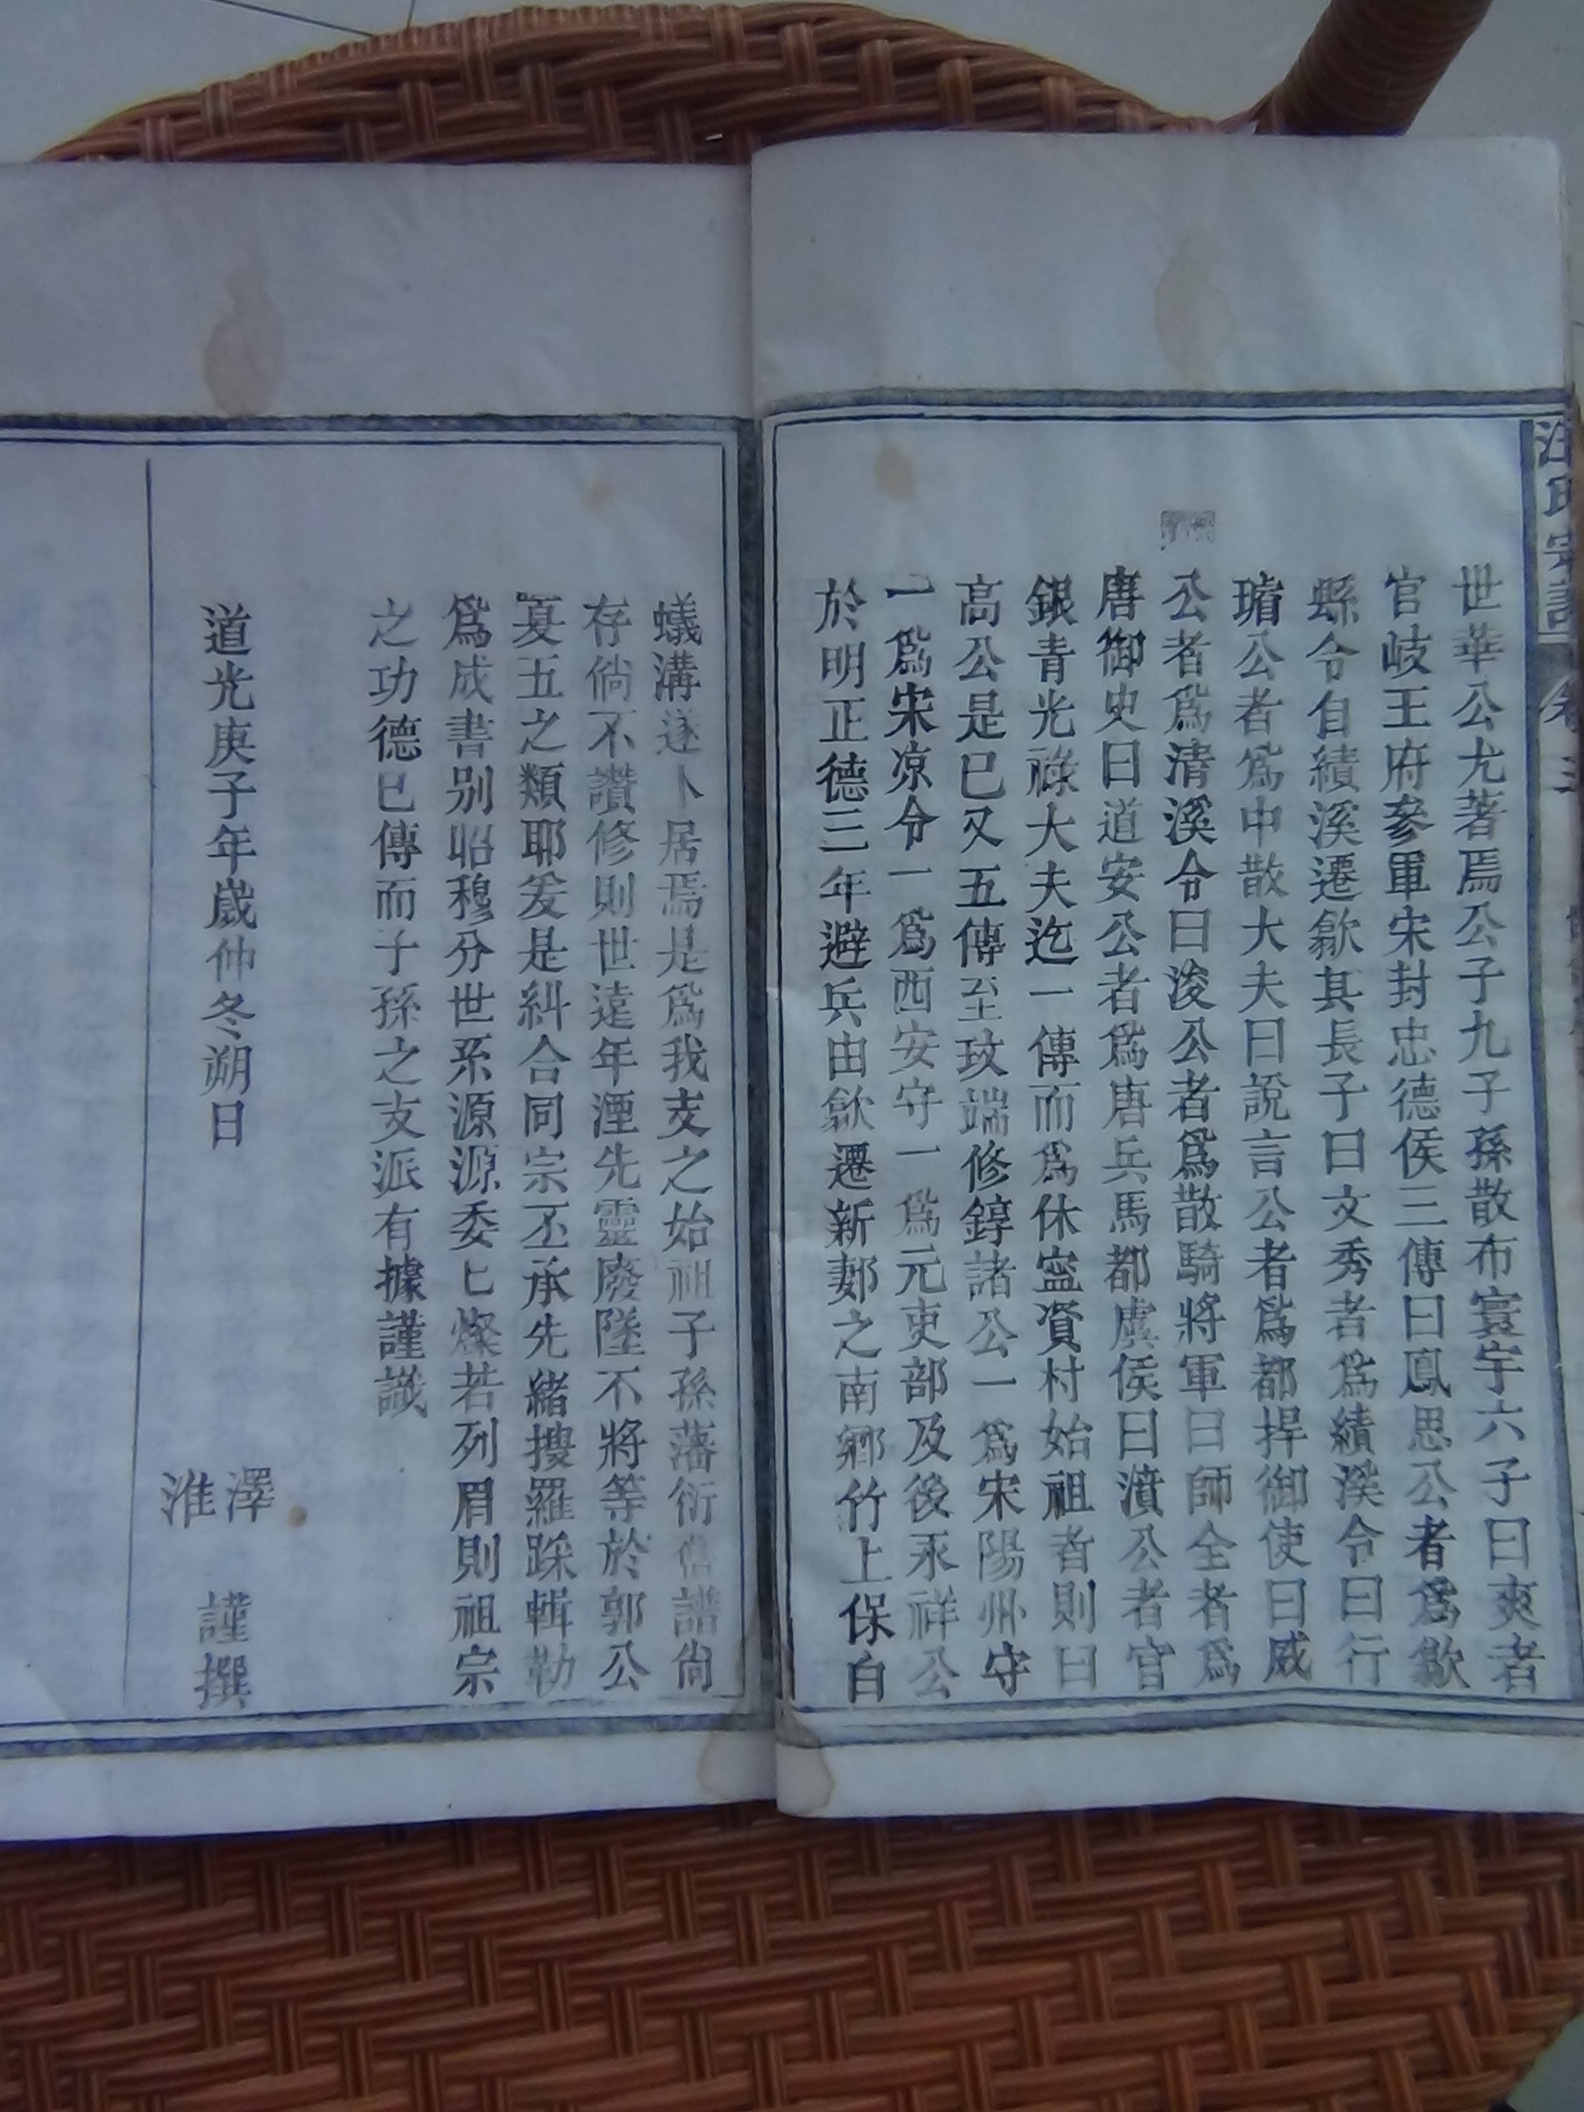 汪氏宗譜 卷三
世華公尤著焉公子九子孫散布寰宇六子曰爽者
官岐王府參軍宋封忠德侯三傳曰鳳思公者爲歙
縣令自績溪遷歙其長子曰文秀者爲績溪令曰行
璿公者爲中散大夫曰說言公者爲都捍御使曰威
公者爲清溪令曰浚公者爲散騎將軍曰師全者爲
唐御史曰道安公者爲唐兵馬都虞侯曰濆公者官
銀青光祿大夫迄一傳而爲休寍資村始祖者則曰
高公是已又五傳至玟端修錞諸公一爲宋陽州守
一爲宋凉令一爲西安守一爲元吏部及後承祥公
於明正德三年避兵由歙遷新鄴之南鄉竹上保自
蟻溝遂卜居焉是爲我支之始祖子孫藩衍舊譜尙
存倘不讚修則世遠年湮先靈廢墜不將等於郭公
夏五之類耶爰是糾合同宗丕承先緒搜羅踩輯勒
爲成書别昭穆分世系源源委匕燦若列眉則祖宗
之功德已傳而子孫之支派有據謹識
道光庚子年歲仲冬朔日
澤
淮
謹撰